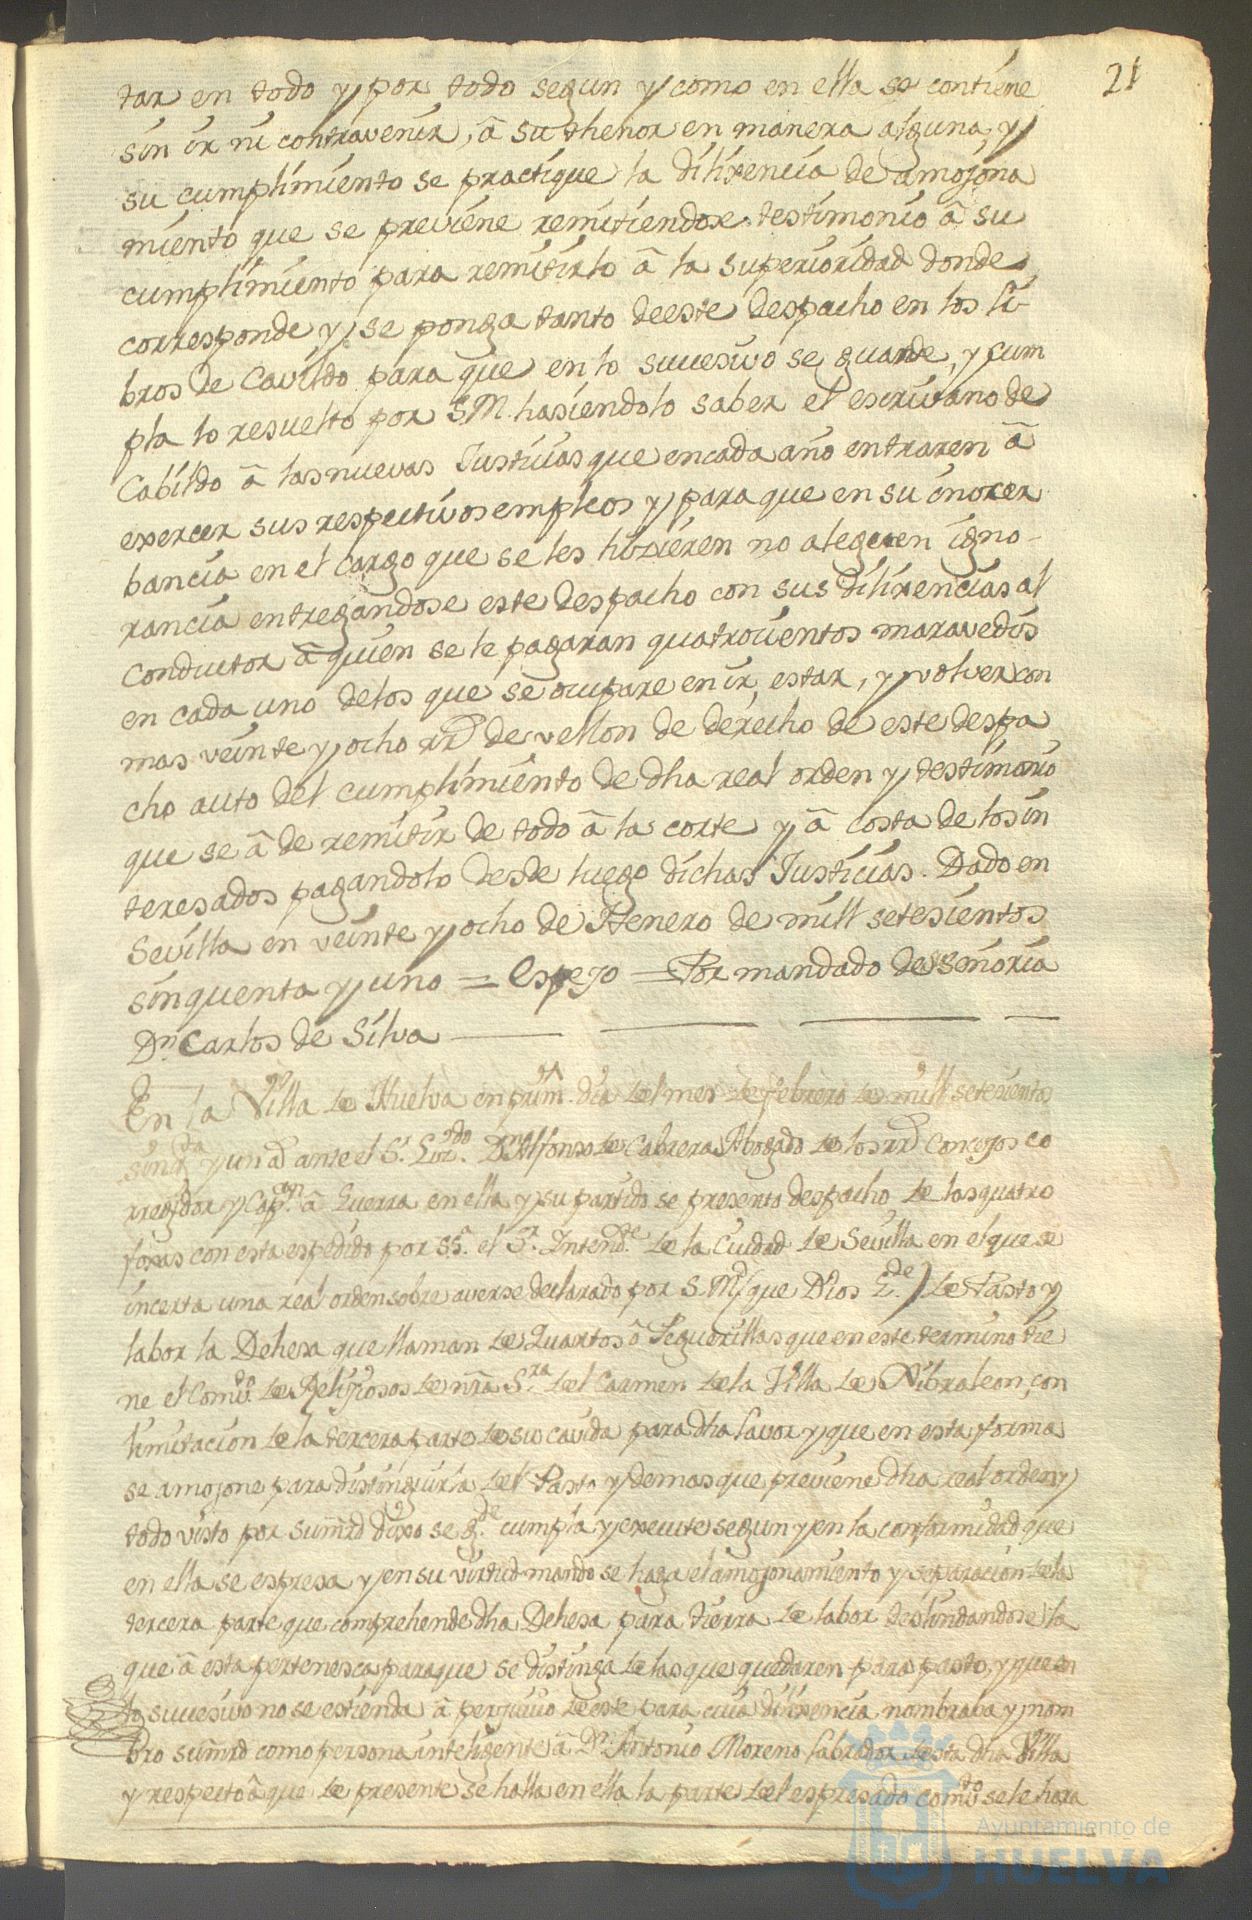 21
tar en todo y por todo segun y como en ella se contiene
sin ir ni contravenir, â su thenor en manera alguna, y
su cumplimiento se practique la dilixencia de amojona
miento que se previene remitiendose testimonio â su
cumplimiento para remitirlo â la superioridad donde
corresponde y se ponga tanto deeste despacho en los li-
bros de Cavildo para que en lo sucesivo se guarde, y cum
pla lo resuelto por S.M. hasiendolo saber el escrivano de
Cabildo â las nuevas Justicias que encada año entraren â
exercer sus respectivos empleos y para que en su
bancia en el Cargo que se les hizieren no aleguen igno-
rancia entregandose este despacho con sus dilixencias al
conductor â quien se le pagaran quatrocientos maravedis
en cada uno delos que se ocupare en ir, estar, y volver con
mas veinte y ocho rrs de vellon de derecho de este despa
cho auto del cumplimiento de dha real orden y testimonio
que se â de remitir de todo â la corte y â costa de los in
teresados pagandolo desde luego dichas Justicias. Dado en
Sevilla en veinte y ocho de Henero de mill setesientos
sinquenta y uno = Espejo = Por mandado de su señoria
Dn Carlos de Silva
En la Villa de Huelva en prim.o dia del mes de febrero de mill setesientos
sinqta y un aº ante el S.r Liz.do Dn Alfonso de Cabrera Abogado de los rrs Concejos co
rregidor y Cap.an â Guerra en ella y su partido se presento despacho de las quatro
foxas con esta espedido por SSa. el Sr. Intend.te de la Ciudad de Sevilla en el que se
incerta una real orden sobre averse declarado por S. M. (que Dios G.de) de Pasto y
labor la Dehesa que llaman de Quartos ô Peguerillas que en este termino tie
ne el Comv.to de Relijiosos de nra S.ra del Carmen de la Villa de Xibraleon, con
limitacion de la tercera parte de su cavida para dha lavor y que en esta forma
se amojone para distinguirla del Pasto y demas que previene dha real orden y
todo visto por su mrd dixo se g.de cumpla y execute segun y en la conformidad que
en ella se espresa y en su virtud mando se haga el amojonamiento y separacion de la
tercera parte que comprehende dha Dehesa para tierra de labor deslindandose la
que â esta pertenesca para que se distinga de las que quedaren para pasto, y que en
lo sucesivo no se estienda â perjuicio de este para cuia dilixencia nombraba y nom
bro su mrd como persona inteligente â Dn. Antonio Moreno labrador desta dha Villa
y respecto â que de presente se halla en ella la parte del espresado comv.to se le hara
Ayuntamiento de
HUELVA